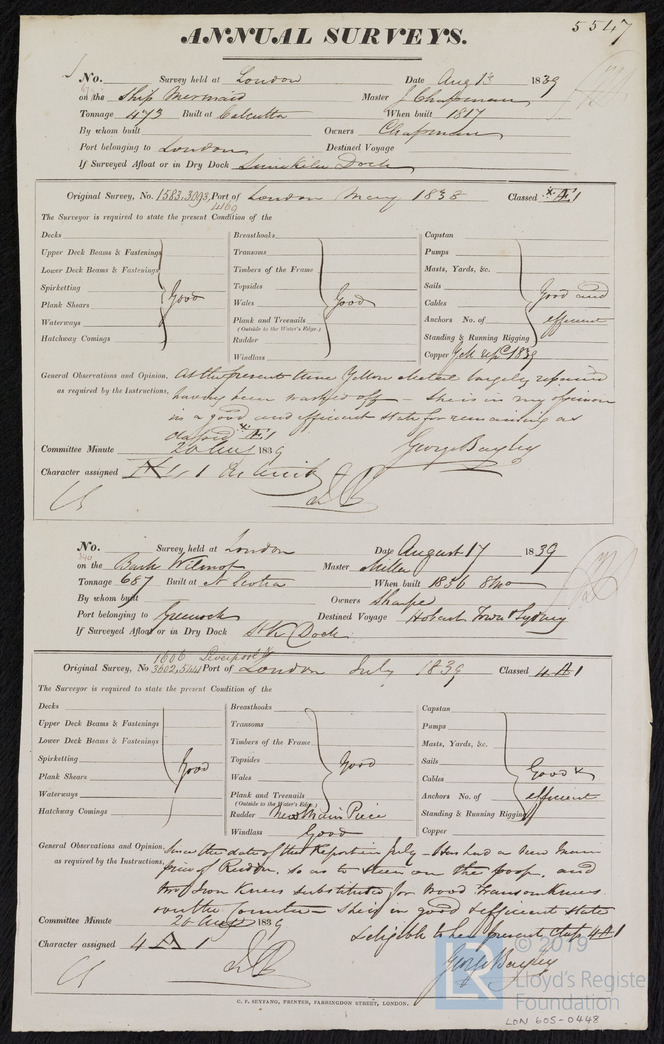 5547
ANNUAL SURVEYS.
No. Survey held at London Date Aug 13 1839
on the Ship Mermaid Master J Chapman
Tonnage 473 Built at Calcutta When built 1817
By whom built Owners Chapman
Port belonging to London Destined Voyage
If Surveyed Afloat or in Dry Dock Limekiln Dock
Original Survey, No. 1583.3093, Port of London May 1838 Classed Æ 1
4169
The Surveyor is required to state the present Condition of the
Decks Breasthooks Capstan
Upper Deck Beams & Fastenings Transoms Pumps
Lower Deck Beams & Fastenings Timbers of the Frame Masts, Yards, &c.
Spirketting Good Topsides Sails Good and
Plank Shears Wales Good Cables
Waterways Plank and Treenails Anchors No. of efficient
(Outside to the Water's Edge.)
Hatchway Comings Rudder Standing & Running Rigging
Windlass Copper Y.M. repd 1839
General Observations and Opinion, At the present time Yellow Metal largely repaired
as required by the Instructions, having been rubbed off – She is in my opinion
in a good and efficient state for remaining as
classed Æ 1
Committee Minute 20 Aug 1839 George Bayley
Character assigned Æ 1
No. Survey held at London Date August 17 1839
on the Bark Wilmot Master Miller
Tonnage 687 Built at N Scotia When built 1836 8mo
By whom built Owners Sharpe
Port belonging to Greenock Destined Voyage Hobart Town & Sydney
If Surveyed Afloat or in Dry Dock St K Dock
1606 Liverpool &
Original Survey, No 3602, 5441 Port of London July 1839 Classed 4 A 1
The Surveyor is required to state the present Condition of the
Decks Breasthooks Capstan
Upper Deck Beams & Fastenings Transoms Pumps
Lower Deck Beams & Fastenings Timbers of the Frame Masts, Yards, &c.
Spirketting Good Topsides Good Sails
Plank Shears Wales Cables Good &
Waterways Plank and Treenails Anchors No. of efficient
(Outside to the Water's Edge.)
Hatchway Comings Rudder New Main Piece Standing & Running Rigging
Windlass Good Copper
General Observations and Opinion, Since the date of the Report in July – Has had a New Main
as required by the Instructions, piece of Rudder, so as to steer on the poop, and
two Iron Knees substituted for wood Transom Knees
over the counter – She is in good & efficient state
Committee Minute 20 Aug 1839 & eligible to her present Class 4 A 1
Character assigned 4 A 1 George Bayley
C. F. SEYFANG, PRINTER, FARRINGDON STREET, LONDON.
© 2019
LR Lloyd's Register
Foundation
LON 605-0448